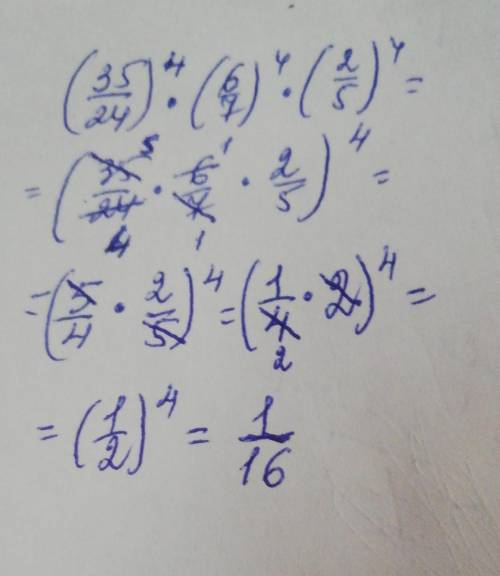 (35/24)^4 · (6/7)^4 · (2/5)^4 =
= (35/24 · 6/7 · 2/5)^4 =
5 1
4 1
= (5/4 · 2/5)^4 = (1/4 · 2)^4 =
2
= (1/2)^4 = 1/16